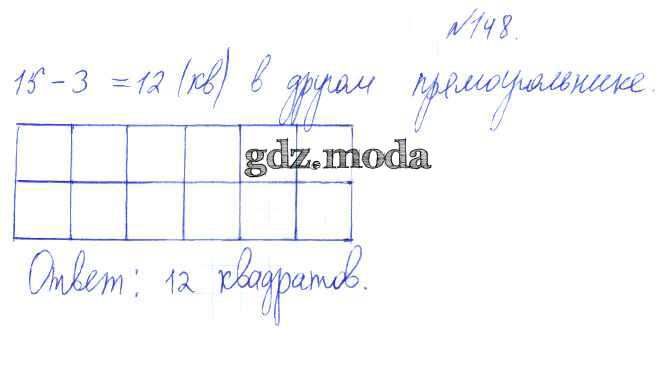 №148.
15 - 3 = 12 (кв) в другом прямоугольнике.
gdz.moda
Ответ: 12 квадратов.